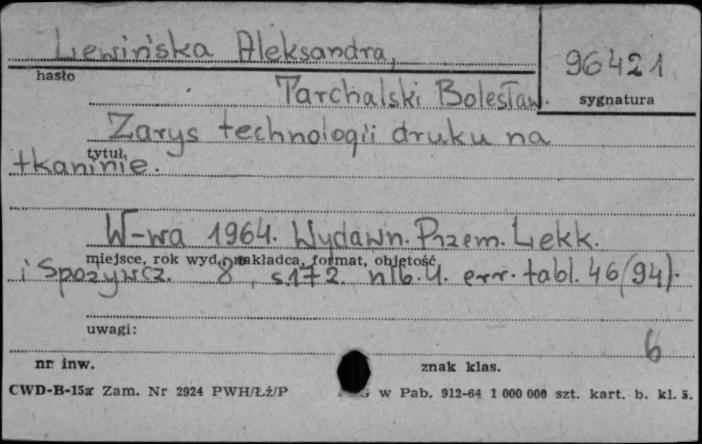 Lewińska Aleksandra,
96421
hasło
sygnatura
Tarchalski Bolesław.
Zarys technologii druku na
tytuł,
tkaninie.
W-wa 1964. Wydawn. Przem. Lekk.
miejsce, rok wyd., nakładca, format, objętość,
i Spożywcz. 8°, s. 172. nlb. 4. err. tabl. 46 (94).
uwagi:
6
nr inw.
znak klas.
CWD-B-15a Zam. Nr 2924 PWH/Łż/P
w Pab. 912-64 1 000 000 szt. kart. b. kl. 5.